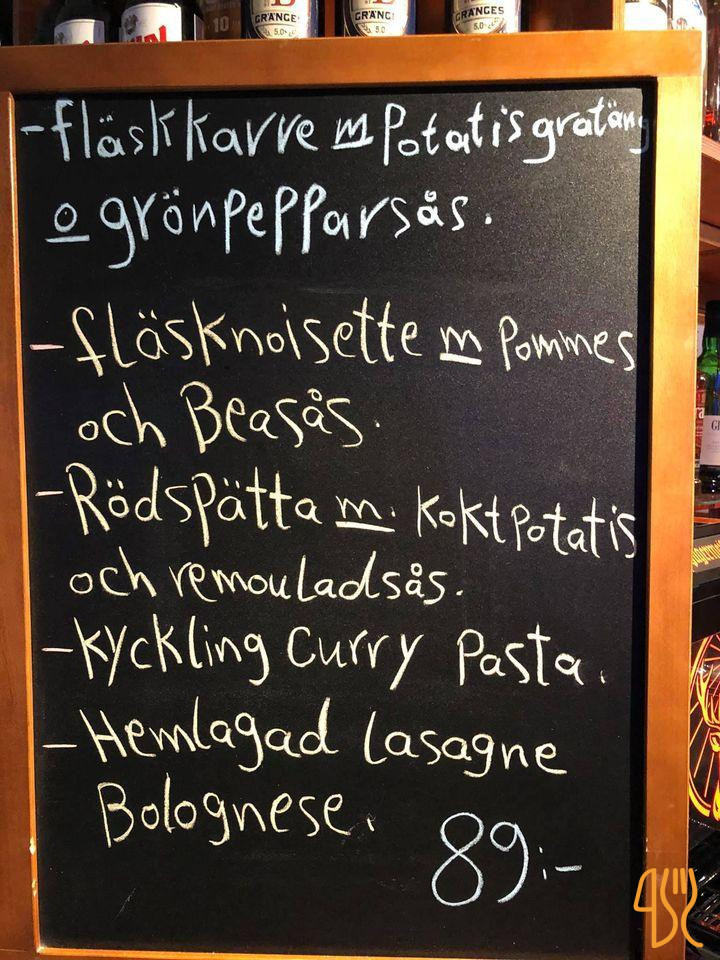 GRÄNGES
5,0%
GRÄNGES
GRÄNGES
5,0%
10
- fläskkarre m Potatisgratäng
o grönpepparsås.
- fläsknoisette m pommes
och Beasås.
- Rödspätta m. koktpotatis
och remouladsås.
- kyckling curry pasta.
- Hemlagad lasagne
Bolognese.
89:-